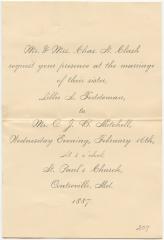 Mr. & Mrs. Chas. H. Clash
request your presence at the marriage
of their sister,
Lillie A. Feddeman,
to
Mr. C. J. B. Mitchell,
Wednesday Evening, February 16th,
at 8 o'clock
St. Paul's Church,
Centreville, Md.
1887